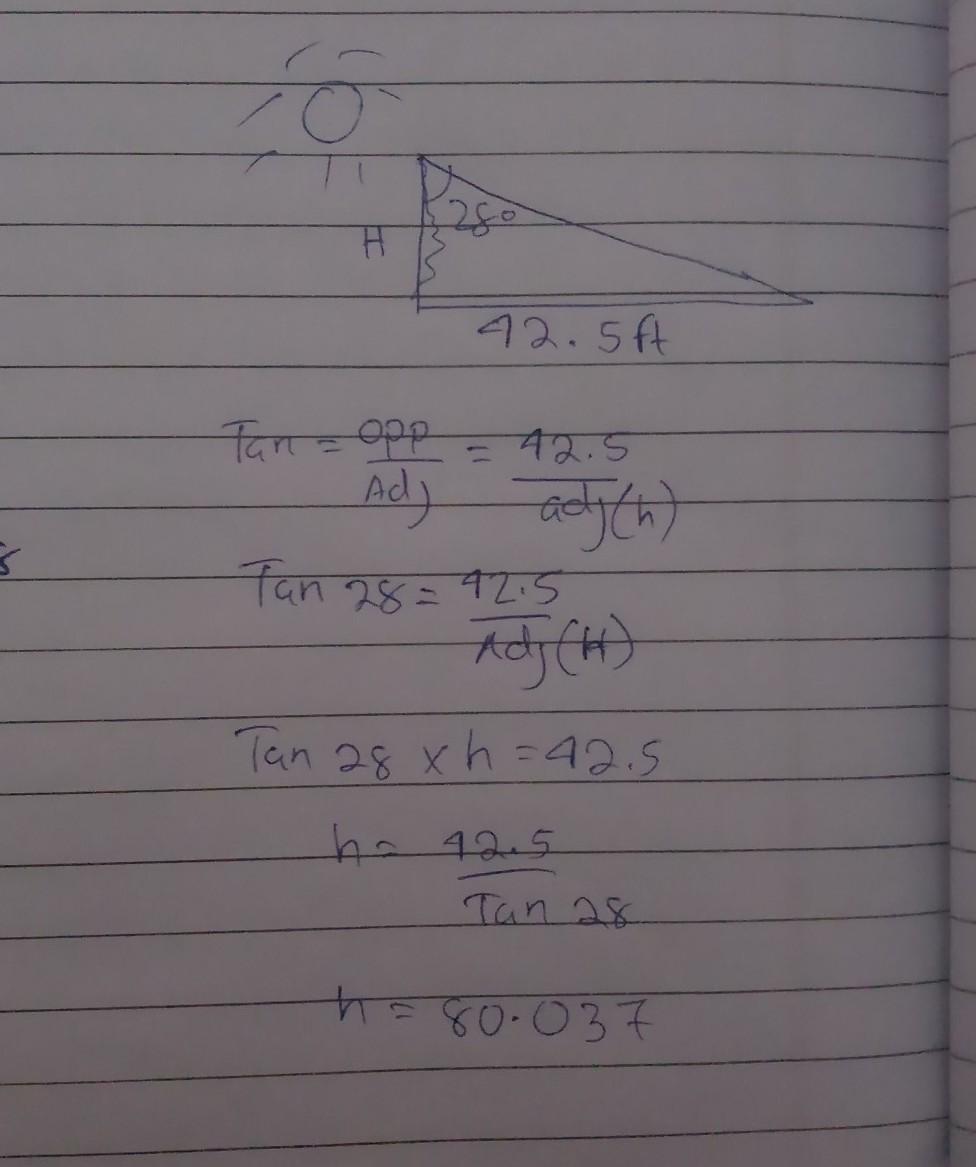 28°
H
42.5ft
Tan = opp/Adj = 42.5/adj(h)
Tan 28 = 42.5/Adj(H)
Tan 28 x h = 42.5
h = 42.5/Tan 28
h = 80.037